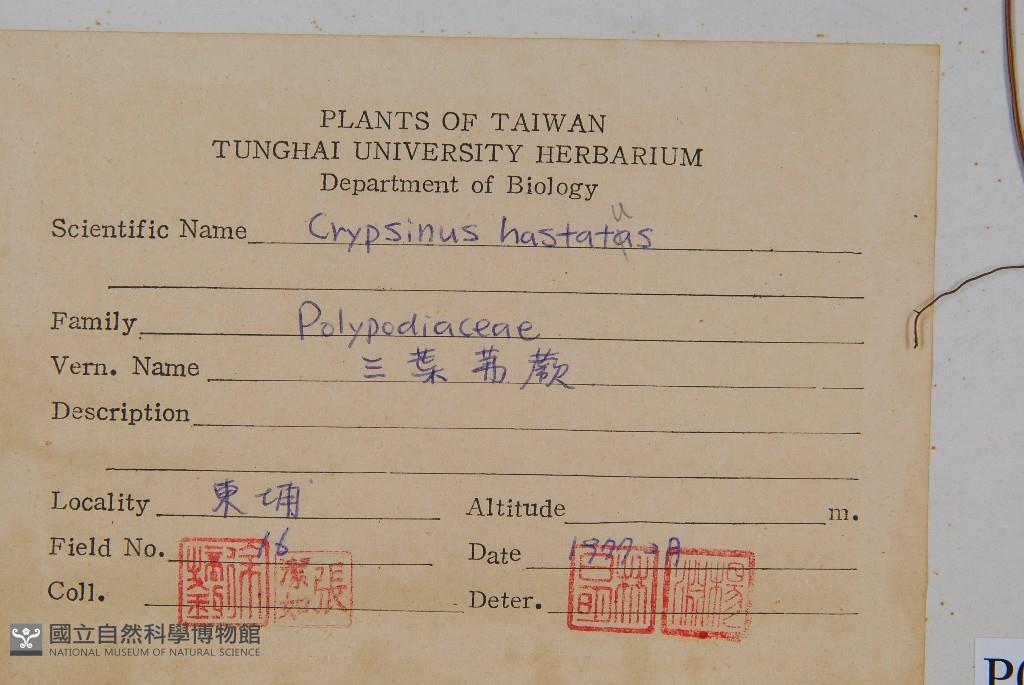 PLANTS OF TAIWAN
TUNGHAI UNIVERSITY HERBARIUM
Department of Biology
Scientific Name Crypsinus hastatus
Family Polypodiaceae
Vern. Name 三葉茀蕨
Description
Locality 東埔 Altitude m.
Field No. 16 Date
Coll. 張 Deter.
國立自然科學博物館
NATIONAL MUSEUM OF NATURAL SCIENCE